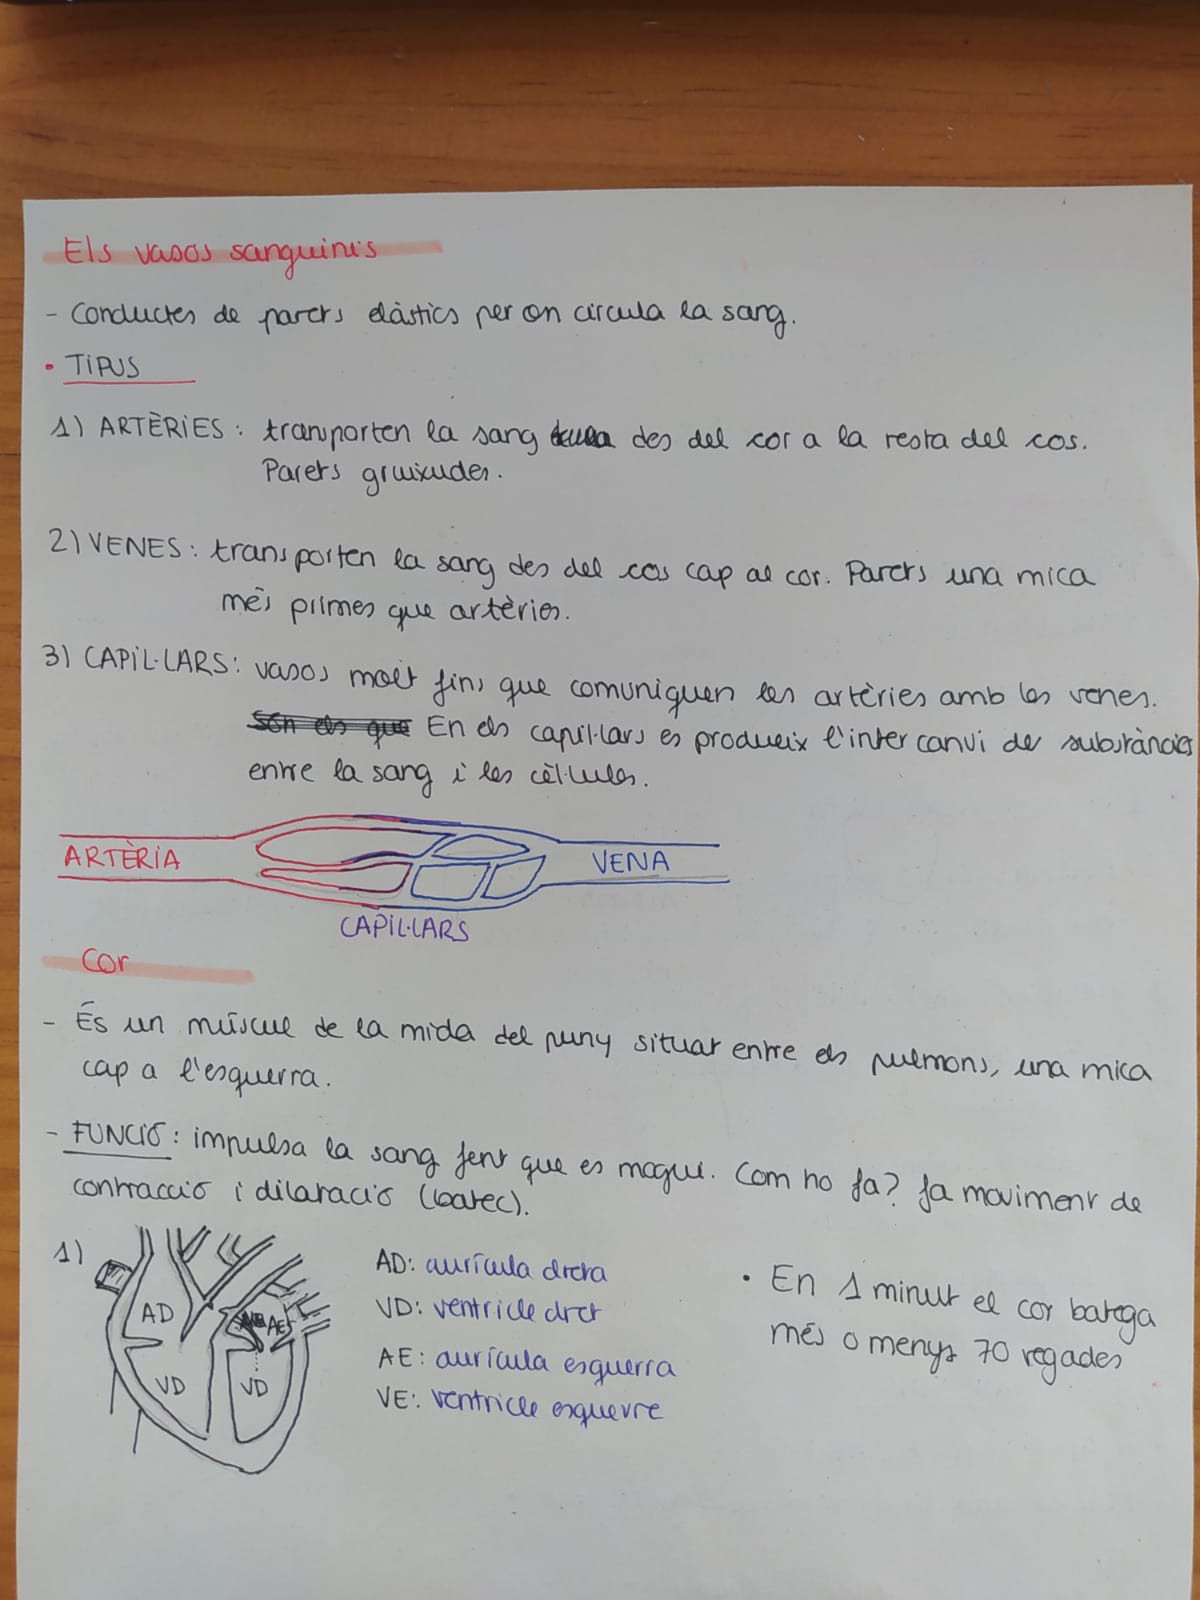 Els vasos sanguinis
- Conductes de parets elàstics per on circula la sang.
• TIPUS
1) ARTÈRIES: transporten la sang des del cor a la resta del cos.
Parets gruixudes.
2) VENES: transporten la sang des del cos cap al cor. Parets una mica
més primes que artèries.
3) CAPIL·LARS: vasos molt fins que comuniquen les artèries amb les venes.
Són els que En els capil·lars es produeix l'intercanvi de substàncies
entre la sang i les cèl·lules.
ARTÈRIA
VENA
CAPIL·LARS
Cor
- És un múscul de la mida del puny situat entre els pulmons, una mica
cap a l'esquerra.
- FUNCIÓ: impulsa la sang fent que es mogui. Com ho fa? fa moviment de
contracció i dilatació (batec).
1)
AD
AE
VD
VD
AD: aurícula dreta
VD: ventricle dret
AE: aurícula esquerra
VE: ventricle esquerre
• En 1 minut el cor batega
més o menys 70 vegades